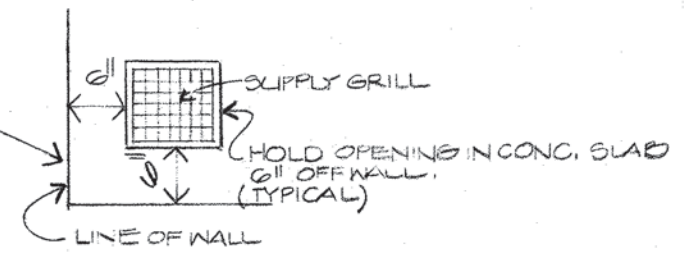 6"
SUPPLY GRILL
HOLD OPENING IN CONC. SLAB
6" OFF WALL.
(TYPICAL)
6"
LINE OF WALL